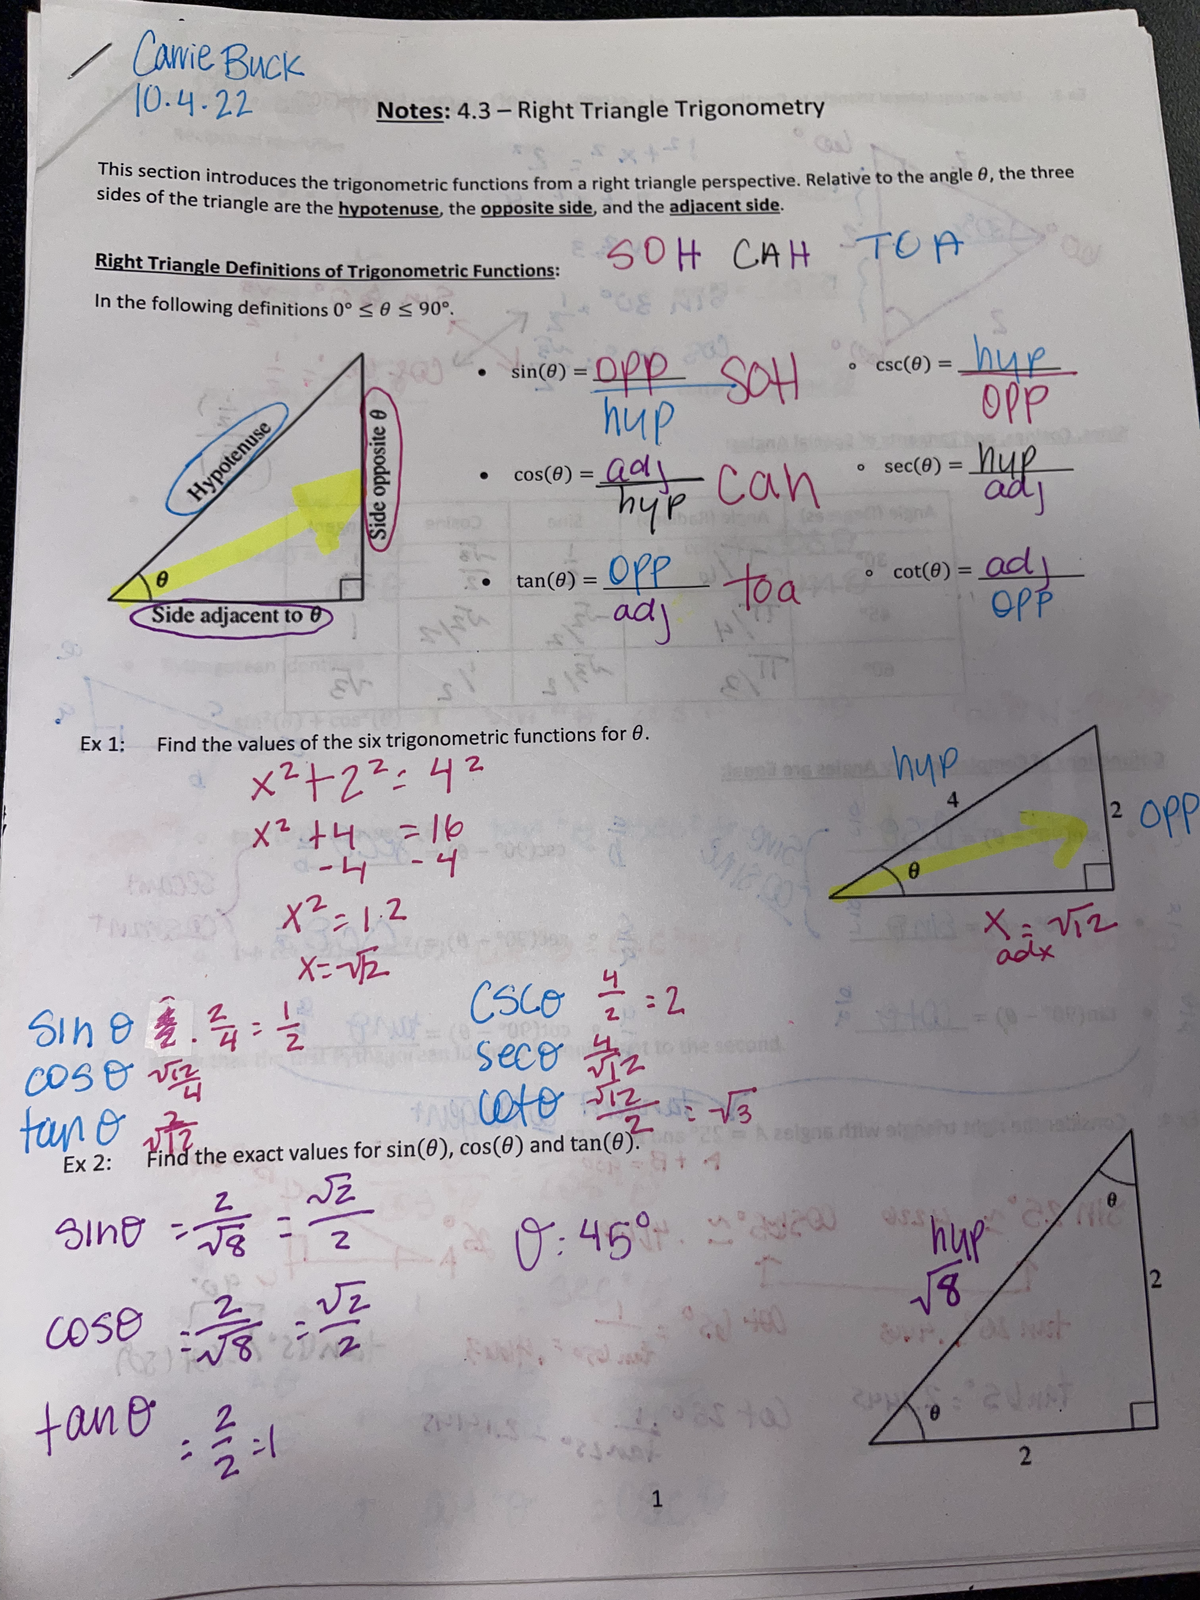 Carrie Buck
10.4.22
Notes: 4.3 – Right Triangle Trigonometry
This section introduces the trigonometric functions from a right triangle perspective. Relative to the angle θ, the three
sides of the triangle are the hypotenuse, the opposite side, and the adjacent side.
SOH CAH TOA
Right Triangle Definitions of Trigonometric Functions:
In the following definitions 0° ≤ θ ≤ 90°.
Hypotenuse
Side opposite θ
θ
Side adjacent to θ
• sin(θ) = opp/hyp SOH
◦ csc(θ) = hyp/opp
• cos(θ) = adj/hyp cah
◦ sec(θ) = hyp/adj
• tan(θ) = opp/adj toa
◦ cot(θ) = adj/opp
Ex 1: Find the values of the six trigonometric functions for θ.
x² + 2² = 4²
x² + 4 = 16
-4 -4
x² = 12
x = √12
hyp
4
2 opp
θ
x = √12
adx
sin θ 2/4 = 1/2
cos θ √12/4
tan θ 2/√12
csc θ 4/2 = 2
sec θ 4/√12
cot θ √12/2 = √3
Ex 2: Find the exact values for sin(θ), cos(θ) and tan(θ).
sin θ = 2/√8 = √2/2
θ: 45°
cos θ = 2/√8 = √2/2
tan θ = 2/2 = 1
hyp
√8
θ
2
θ
2
1